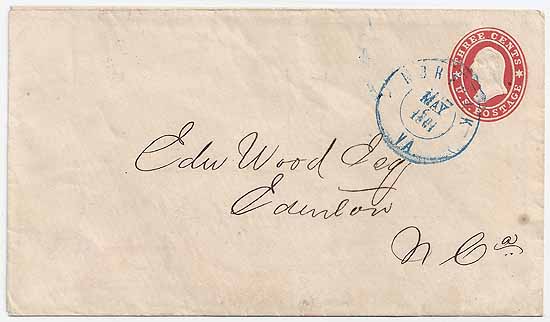 THREE CENTS
U.S. POSTAGE
NORFOLK
MAY
VA.
Edw Wood Esq
Edenton
N Ca